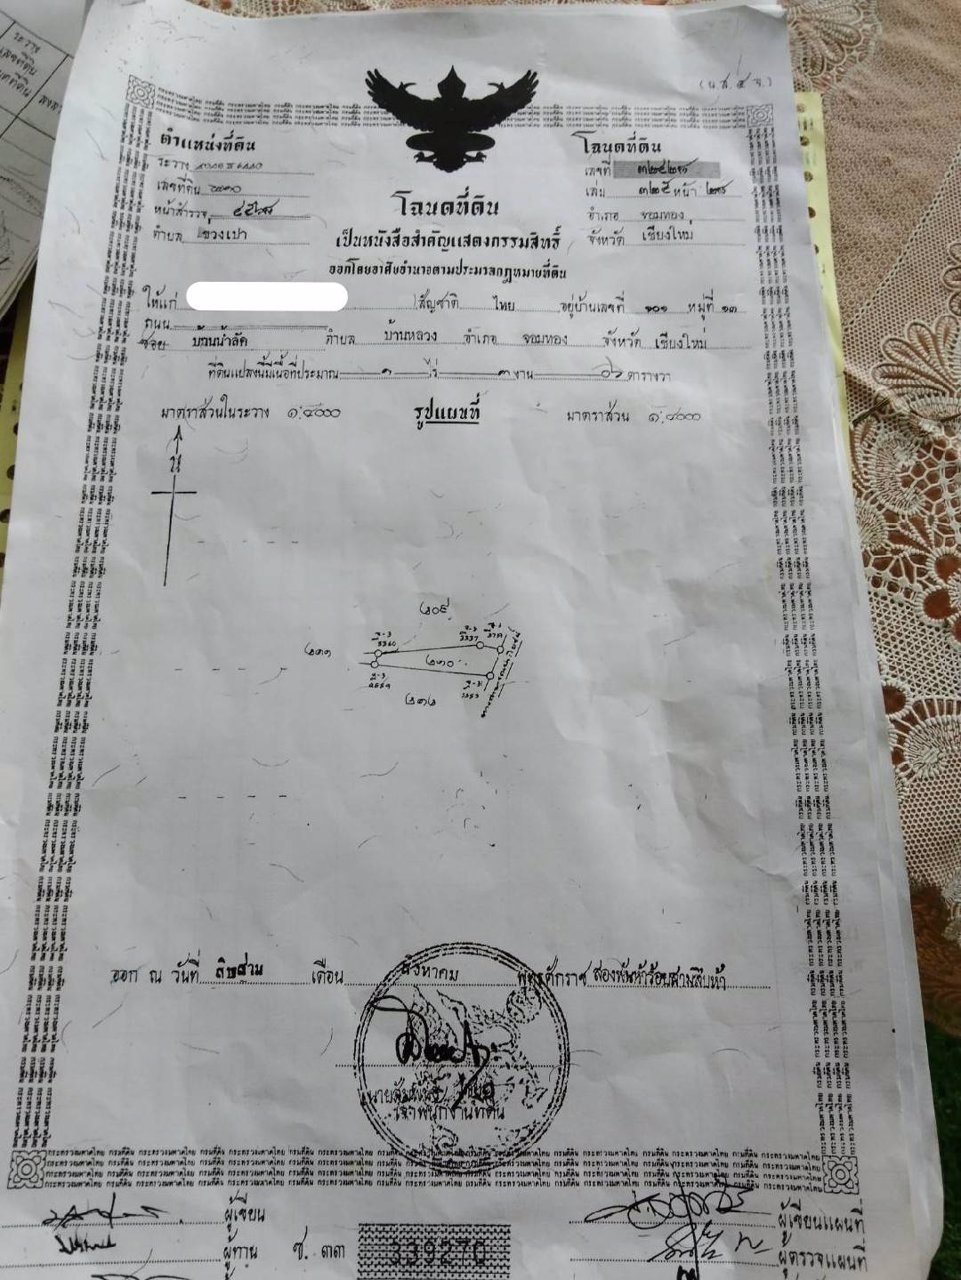 (น.ส.๔ จ.)
ตำแหน่งที่ดิน
ระวาง
เลขที่ดิน ๒๓๐
หน้าสำรวจ
ตำบล ข่วงเปา
โฉนดที่ดิน
เลขที่ ๓๒๕๒๘
เล่ม ๓๒๕ หน้า ๒๘
อำเภอ จอมทอง
จังหวัด เชียงใหม่
โฉนดที่ดิน
เป็นหนังสือสำคัญแสดงกรรมสิทธิ์
ออกโดยอาศัยอำนาจตามประมวลกฎหมายที่ดิน
ให้แก่ สัญชาติ ไทย อยู่บ้านเลขที่ ๑๐๑ หมู่ที่ ๑๓
ถนน
ซอย บ้านน้ำลัด ตำบล บ้านหลวง อำเภอ จอมทอง จังหวัด เชียงใหม่
ที่ดินแปลงนี้มีเนื้อที่ประมาณ ๑ ไร่ ๓ งาน ตารางวา
มาตราส่วนในระวาง ๑:๔๐๐๐ รูปแผนที่ มาตราส่วน ๑:๔๐๐๐
น
๒๓๑
๒๓๐
๒๓๒
ออก ณ วันที่ สิบสาม เดือน สิงหาคม พุทธศักราช สองพันห้าร้อยสามสิบห้า
เจ้าพนักงานที่ดิน
ผู้เขียน
ผู้ทาน
ช. ๓๓
339270
ผู้เขียนแผนที่
ผู้ตรวจแผนที่